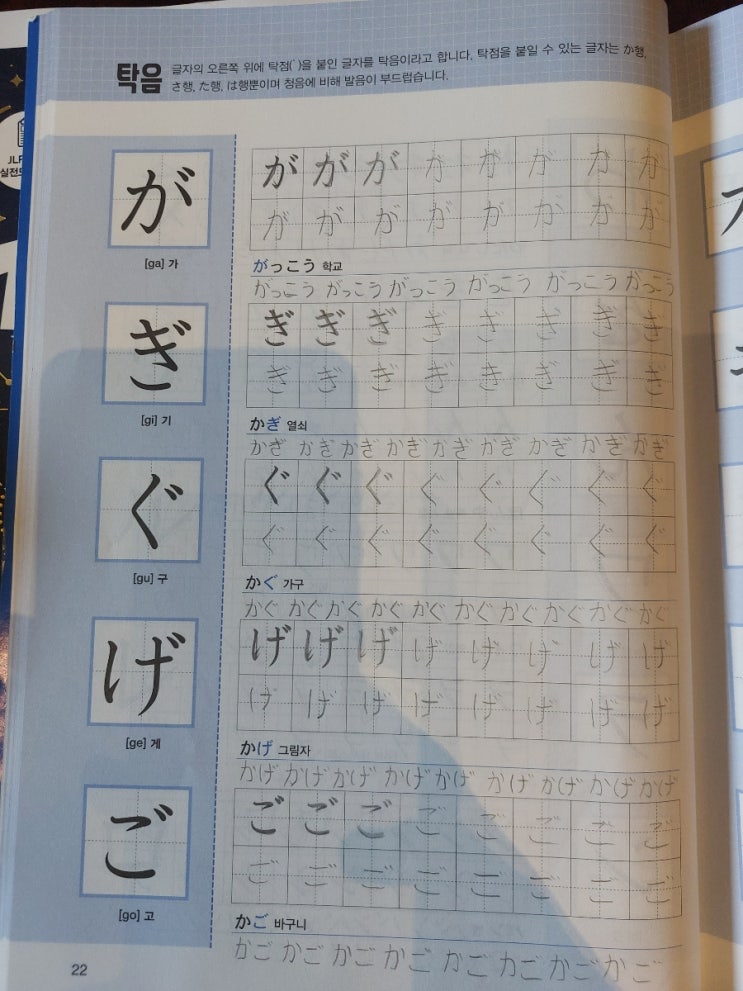 탁음 글자의 오른쪽 위에 탁점(゛)을 붙인 글자를 탁음이라고 합니다. 탁점을 붙일 수 있는 글자는 か행,
さ행, た행, は행뿐이며 청음에 비해 발음이 부드럽습니다.
JLP
실전모
が
[ga] 가
が が が が が が が が
が が が が が が が が
がっこう 학교
がっこう がっこう がっこう がっこう がっこう がっこう
ぎ
[gi] 기
ぎ ぎ ぎ ぎ ぎ ぎ ぎ ぎ
ぎ ぎ ぎ ぎ ぎ ぎ ぎ ぎ
かぎ 열쇠
かぎ かぎ かぎ かぎ かぎ かぎ かぎ かぎ かぎ
ぐ
[gu] 구
ぐ ぐ ぐ ぐ ぐ ぐ ぐ ぐ
ぐ ぐ ぐ ぐ ぐ ぐ ぐ ぐ
かぐ 가구
かぐ かぐ かぐ かぐ かぐ かぐ かぐ かぐ かぐ かぐ
げ
[ge] 게
げ げ げ げ げ げ げ げ
げ げ げ げ げ げ げ げ
かげ 그림자
かげ かげ かげ かげ かげ かげ かげ かげ かげ
ご
[go] 고
ご ご ご ご ご ご ご ご
ご ご ご ご ご ご ご ご
かご 바구니
かご かご かご かご かご かご かご かご
22